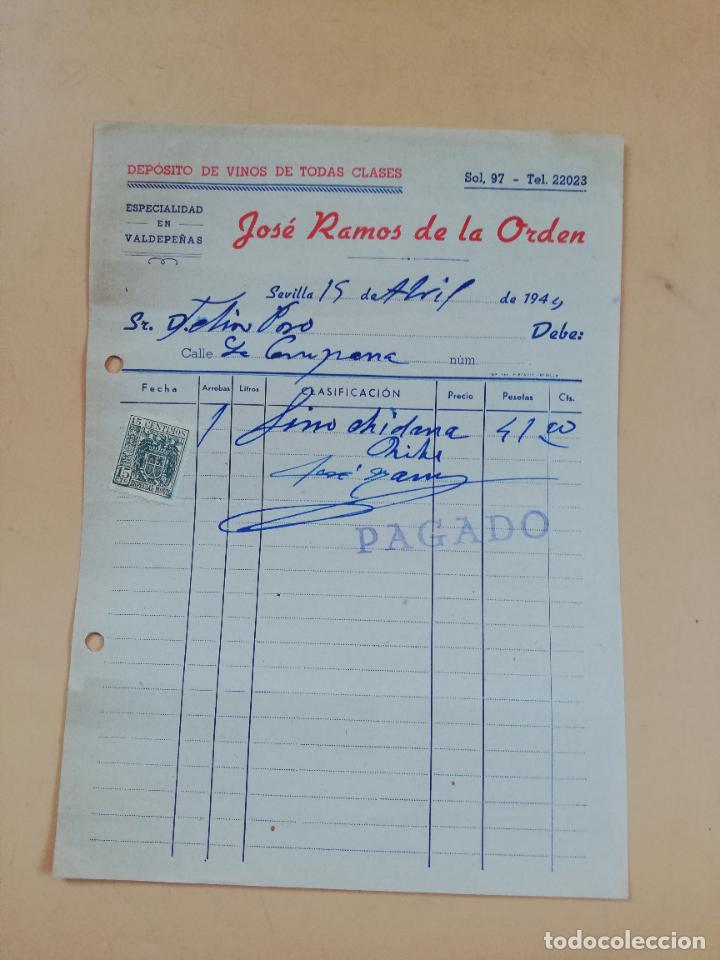 DEPÓSITO DE VINOS DE TODAS CLASES
Sol, 97 - Tel. 22023
ESPECIALIDAD
EN
VALDEPEÑAS
José Ramos de la Orden
Sevilla 15 de Abril de 194
Sr. D. Debe:
Calle La Campana núm.
Fecha Arrobas Litros CLASIFICACIÓN Precio Pesetas Cts.
15 CENTIMOS
15
1 41 20
José
PAGADO
todocoleccion
todocoleccion.net